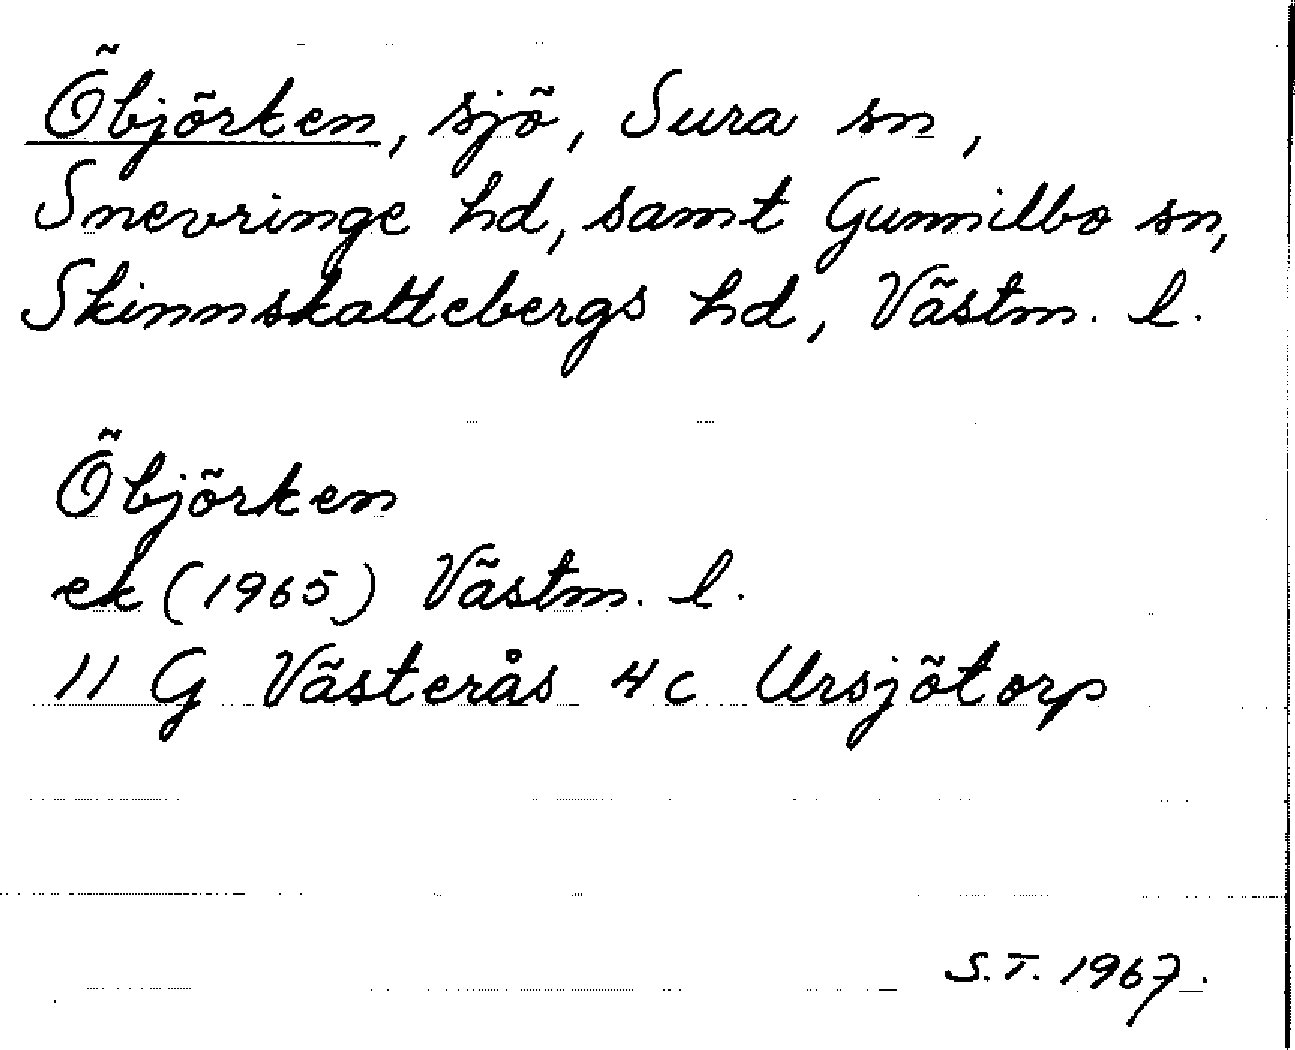 Öbjörken, sjö, Sura sn,
Snevringe hd, samt Gunnilbo sn,
Skinnskattebergs hd, Västm. l.
Öbjörken
ek (1965) Västm. l.
11 G Västerås 4c Ursjötorp
S.T. 1967.